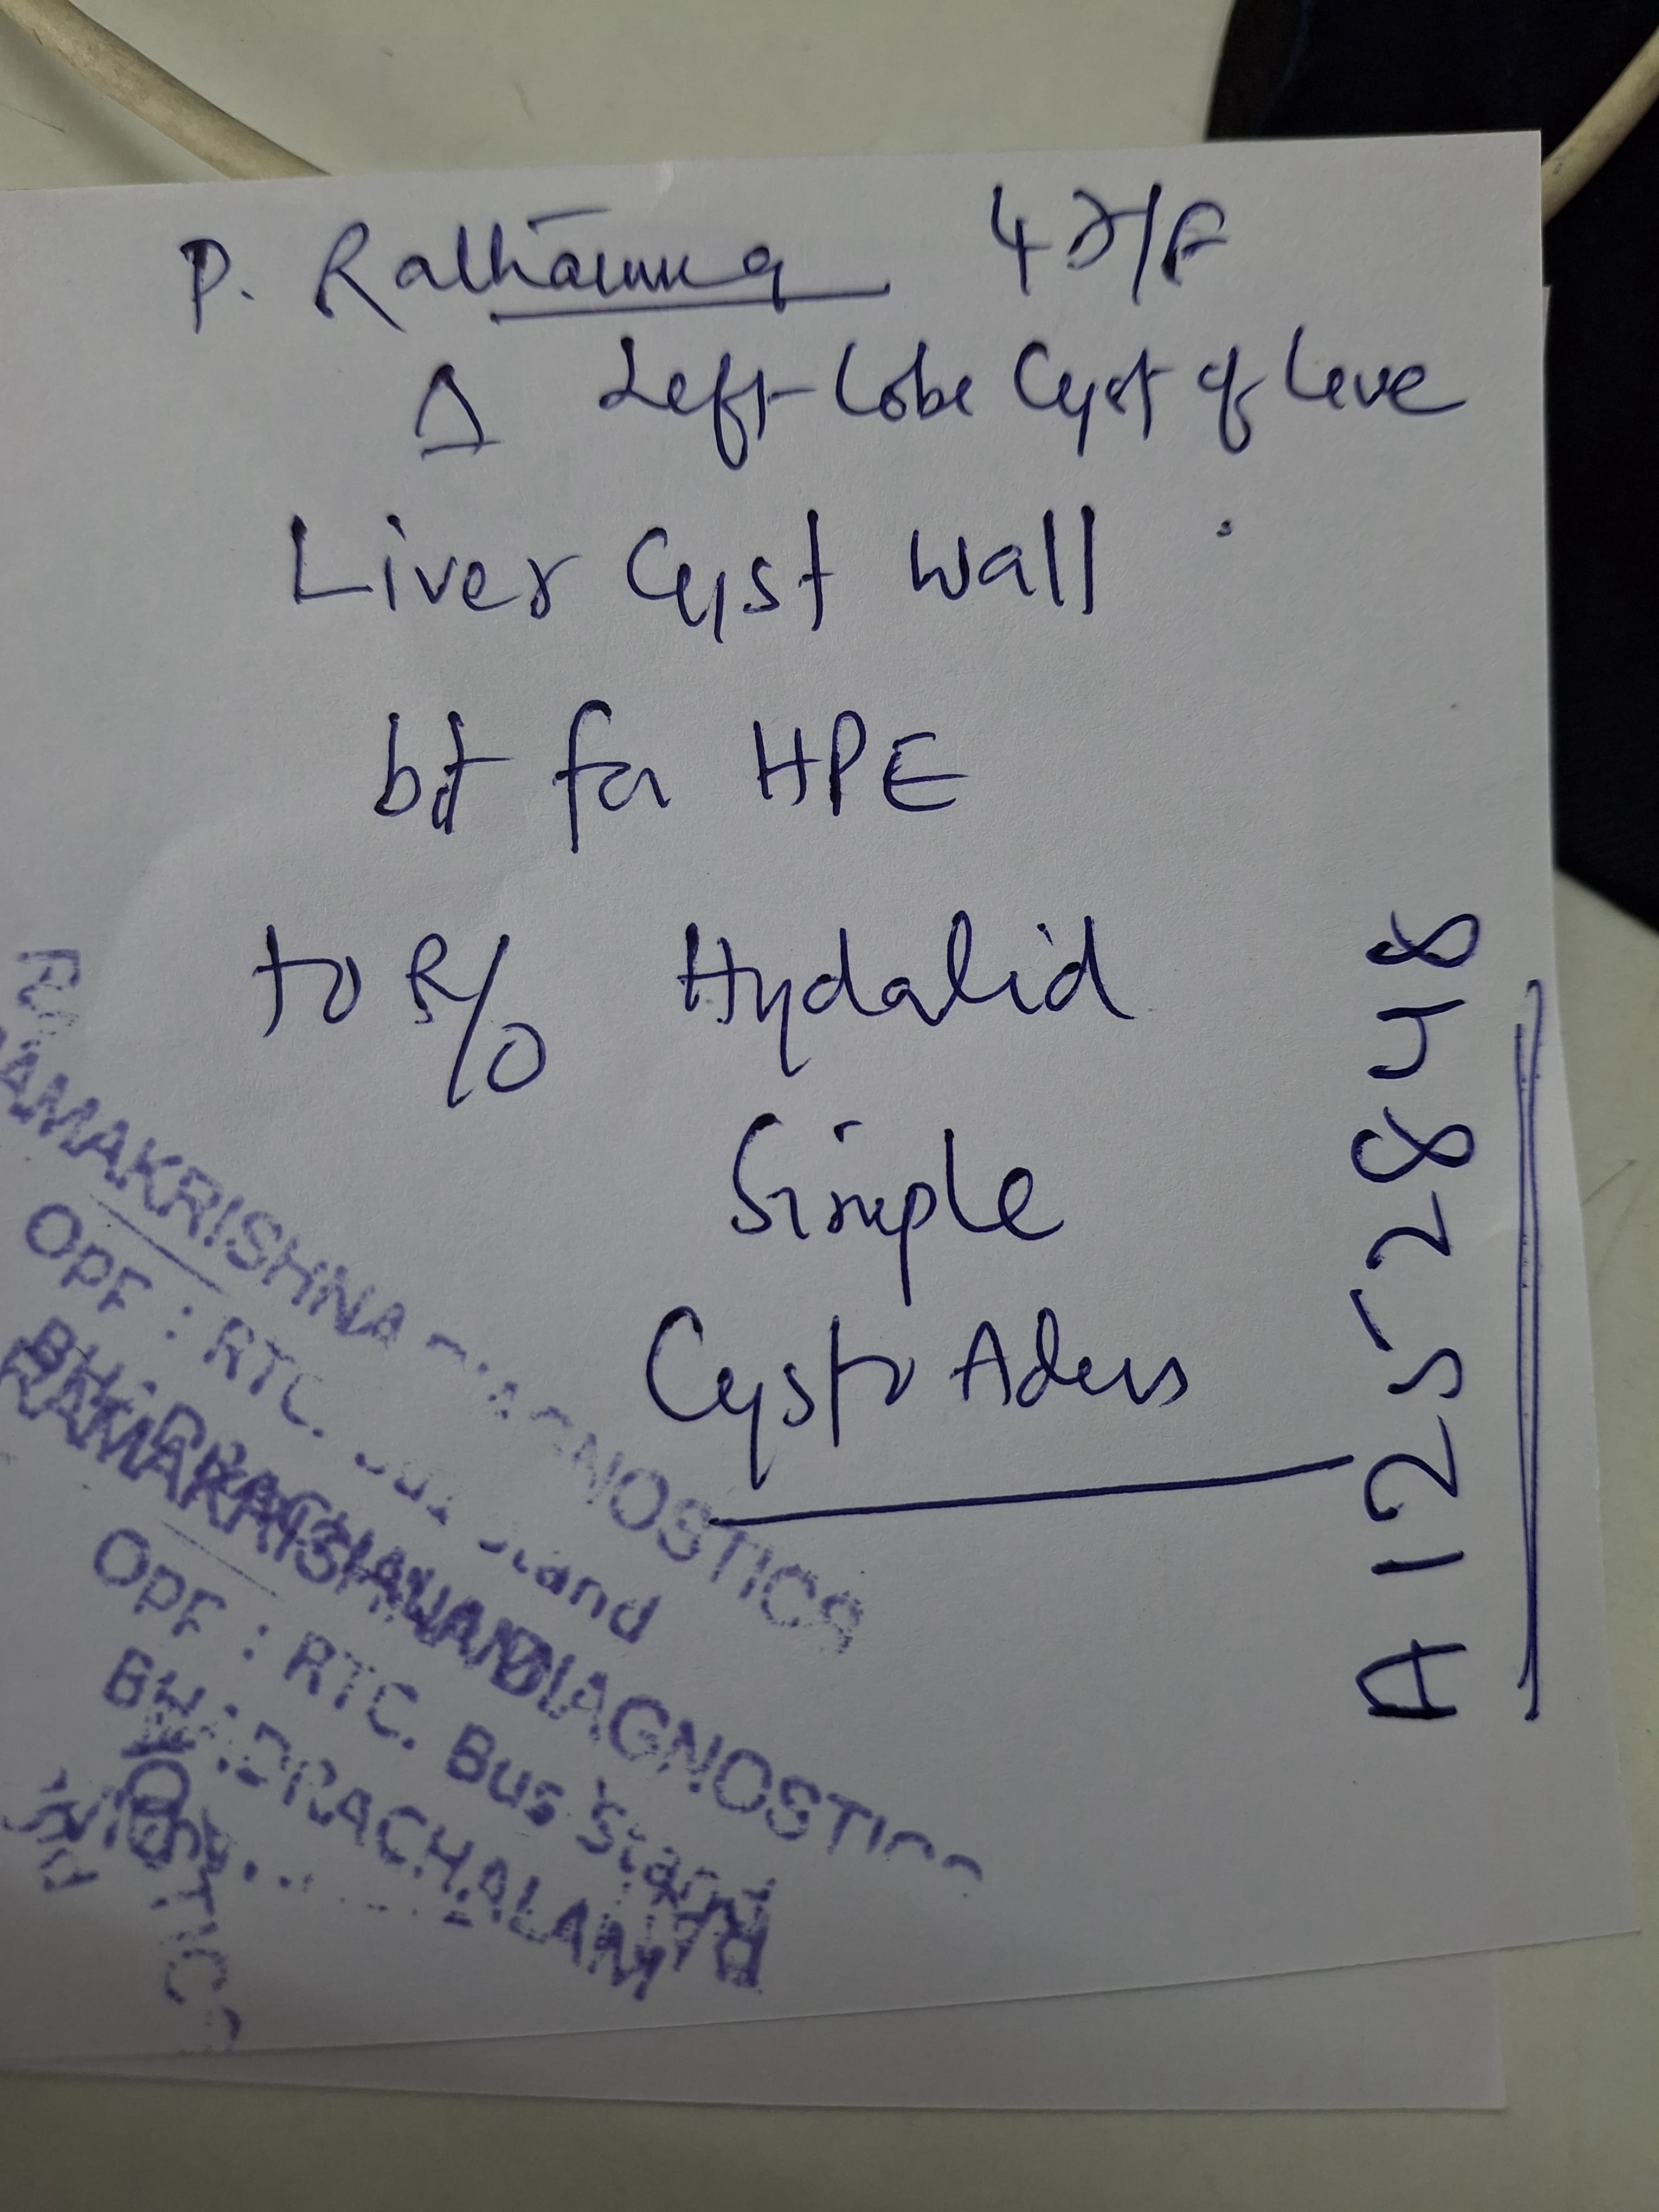 P. Rathamma 42/F
Δ Left Lobe Cyst of Live
Liver Cyst Wall
bit for HPE
to R/O Hydatid
Simple
Cysto Adens
A12552848
RAMAKRISHNA DIAGNOSTICS
Opp : RTC. Bus Stand
BHADRACHALAM
RAMAKRISHNA DIAGNOSTICS
Opp : RTC. Bus Stand
BHADRACHALAM